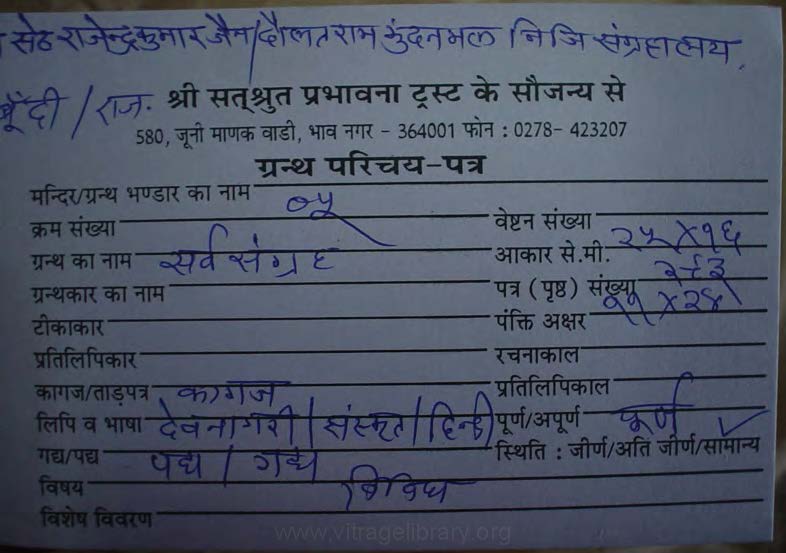 सेठ राजेन्द्रकुमार जैन/दौलतराम कुंदनमल निजि संग्रहालय,
बूँदी / राज. श्री सत्श्रुत प्रभावना ट्रस्ट के सौजन्य से
580, जूनी माणक वाडी, भाव नगर - 364001 फोन : 0278- 423207
ग्रन्थ परिचय-पत्र
मन्दिर/ग्रन्थ भण्डार का नाम
क्रम संख्या वेष्टन संख्या
ग्रन्थ का नाम सर्व संग्रह आकार से.मी. २५ X १६
ग्रन्थकार का नाम पत्र (पृष्ठ) संख्या
टीकाकार पंक्ति अक्षर ११ X २४
प्रतिलिपिकार रचनाकाल
कागज/ताड़पत्र कागज प्रतिलिपिकाल
लिपि व भाषा देवनागरी / संस्कृत / हिन्दी पूर्ण/अपूर्ण पूर्ण
गद्य/पद्य पद्य / गद्य स्थिति : जीर्ण/अति जीर्ण/सामान्य ✓
विषय विविध
विशेष विवरण
www.vitragelibrary.org